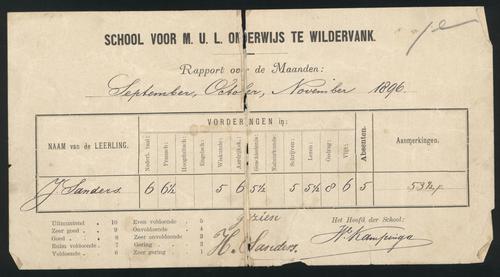 SCHOOL VOOR M. U. L. ONDERWIJS TE WILDERVANK.
Rapport over de Maanden:
September, October, November 1896.
NAAM van de LEERLING.
VORDERINGEN in:
Nederl. taal:
Fransch:
Hoogduitsch:
Engelsch:
Wiskunde:
Aardrijksk.:
Geschiedenis:
Natuurkunde:
Schrijven:
Lezen:
Gedrag:
Vlijt:
Absenten.
Aanmerkingen.
J. Sanders. 6 6½ 5 6 5½ 5 5½ 8 6 5 53½
Uitmuntend - 10 Even voldoende - 5
Zeer goed - 9 Onvoldoende - 4
Goed - 8 Zeer onvoldoende - 3
Ruim voldoende - 7 Gering - 2
Voldoende - 6 Zeer gering - 1
gezien
H. Sanders.
Het Hoofd der School:
H. Kampinga